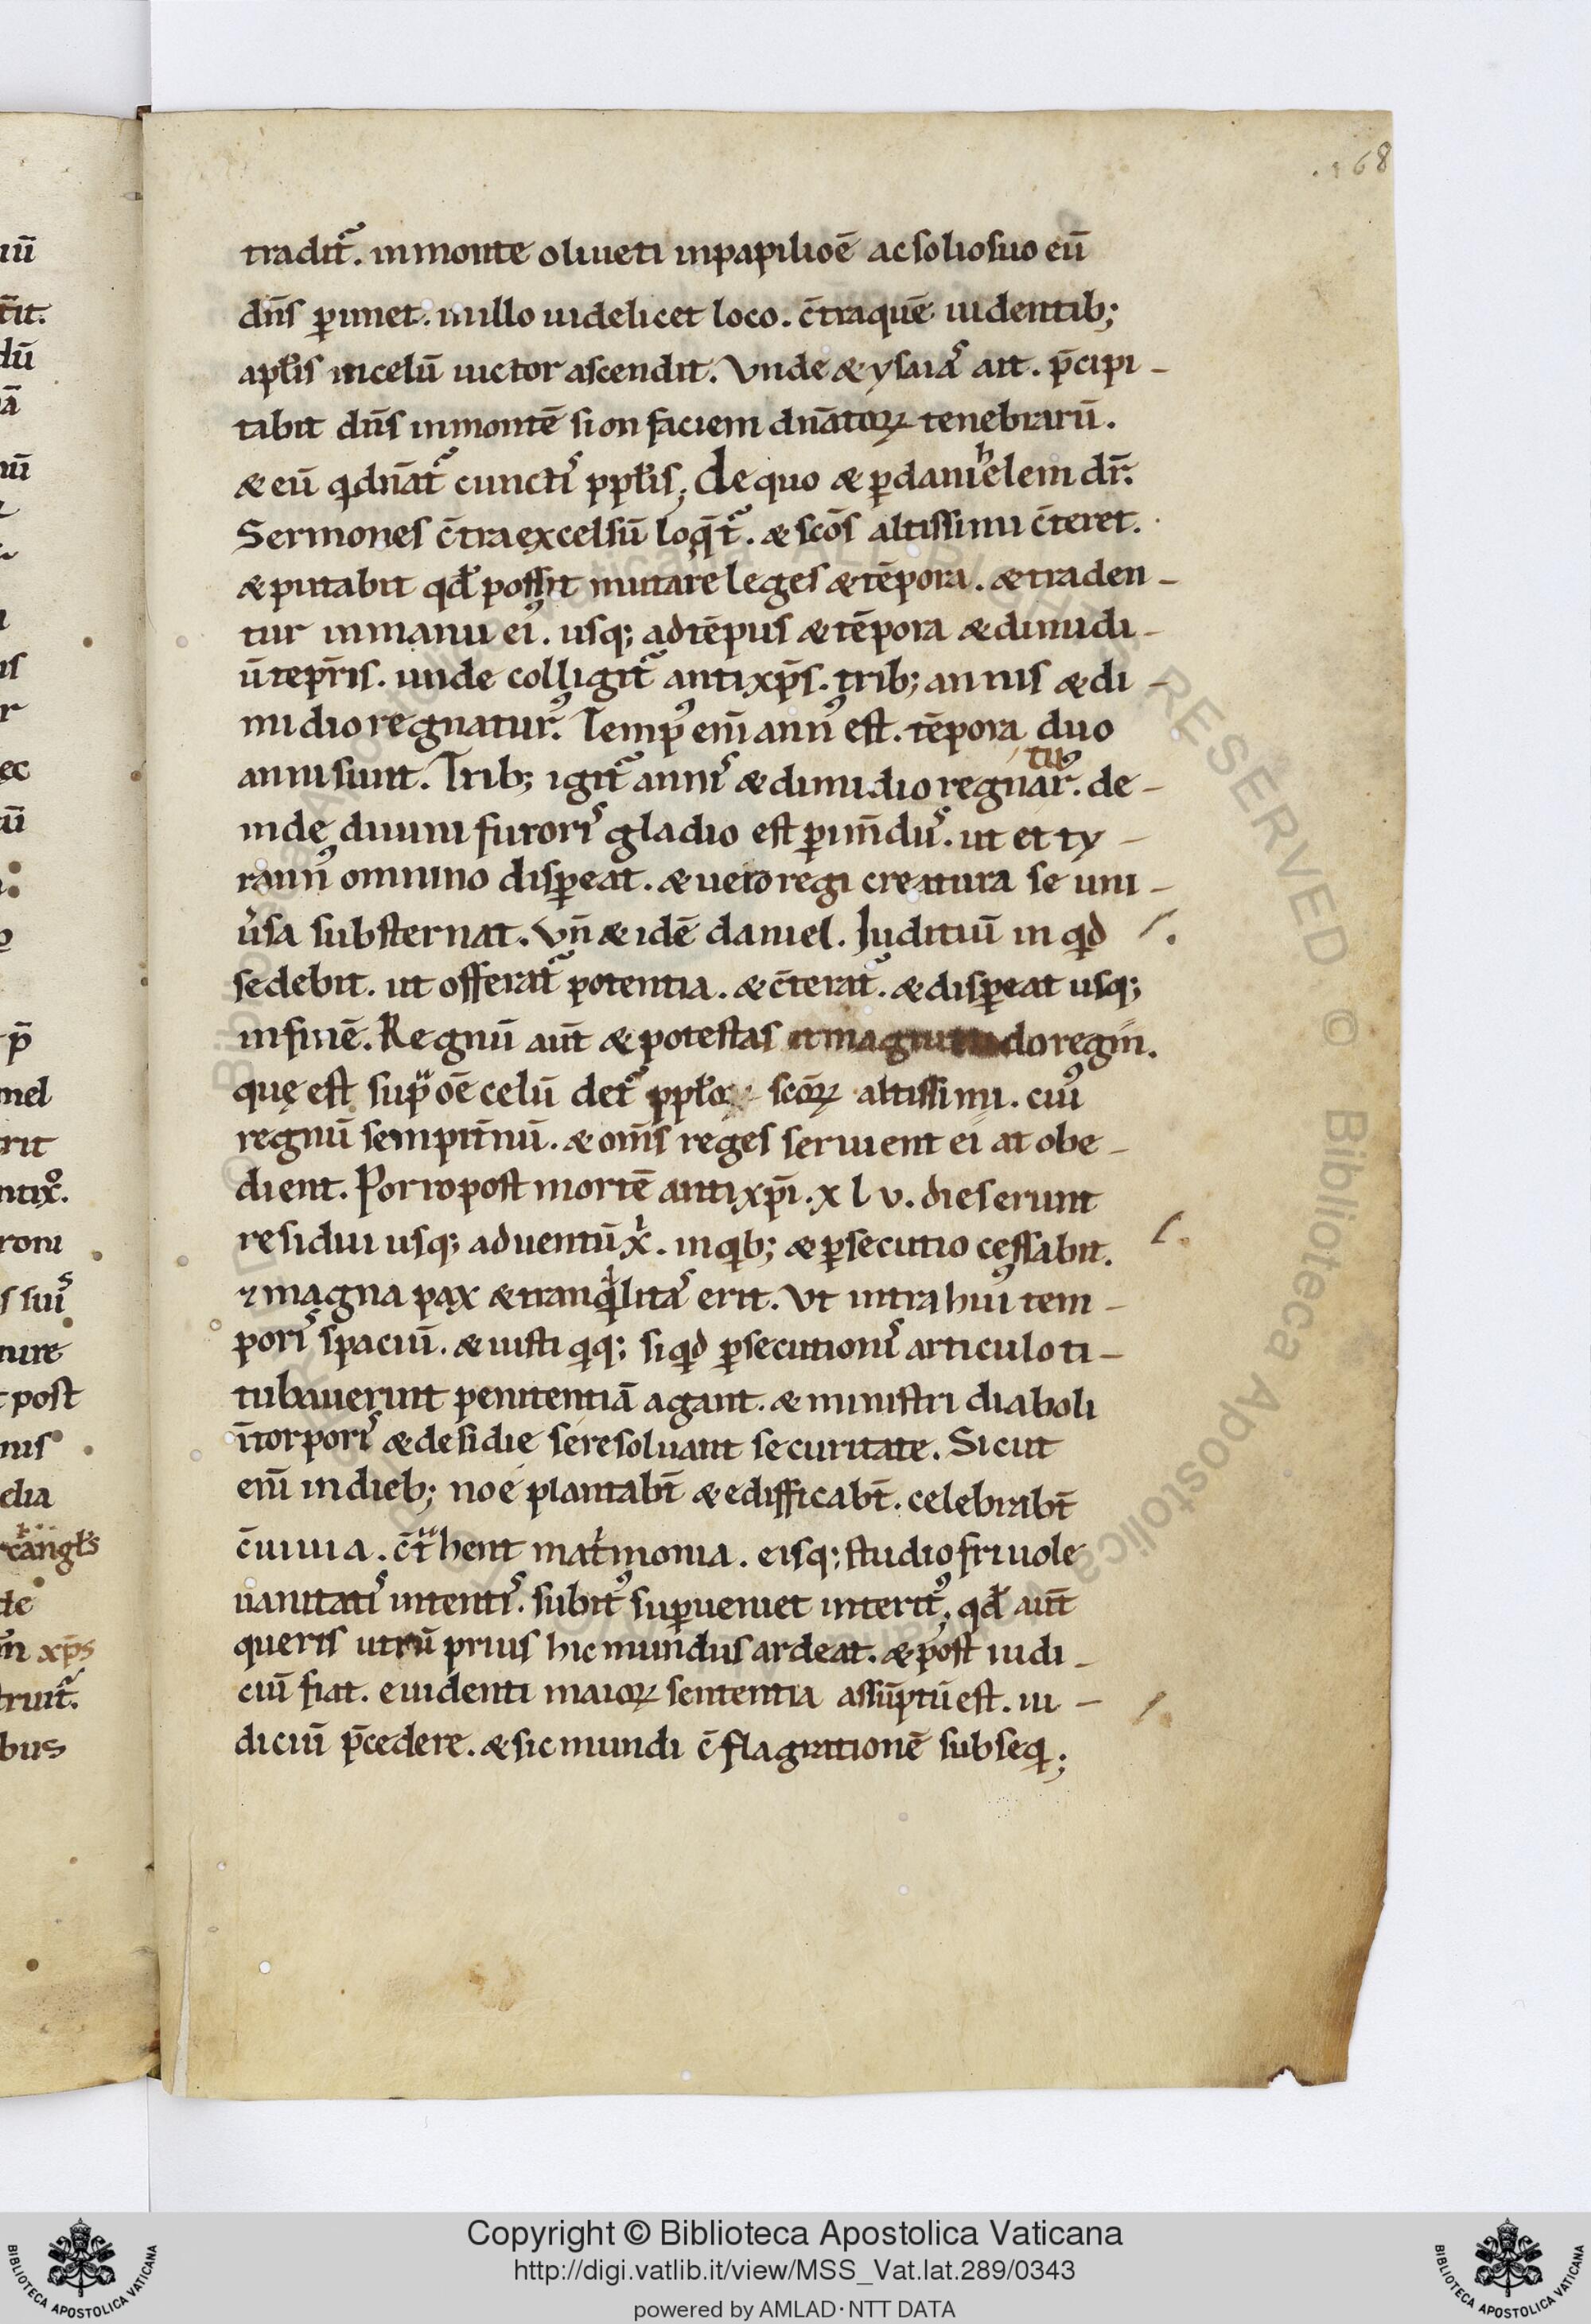 .168
tradit᷑. inmonte oliueti inpapilioē acsoliosuo eū
dn̄s ꝑimet. inillo uidelicet loco. c̄traquē uidentib;
apƚis incelū uictor ascendit. Vnde & ysaiaˢ ait. p̄cipi-
tabit dn̄s inmontē sion faciem dn̄atoꝝ tenebrarū.
& eū qͥ dn̄at᷑ cunctiˢ ppƚis; De quo & ꝑdanihelem dr̄.
Sermones c̄traexcelsū loq̄t᷑. & scōs altissimi c̄teret.
& putabit qđ possit mutare leges & tēpora. & traden-
tur inmanu eiꝰ. usq; adtēpus & tēpora & dimidi-
ū tepr̄is. unde colligit᷑ antixp̄s. trib; annis & di-
midio regnaturꝰ. Tempꝰ eni̅ annꝰ est. tēpora duo
anni sunt. Trib; igit᷑ anniˢ & dimidio regnaturꝰ. de-
inde diuini furoriˢ gladio est ꝑim̄duˢ. ut et ty-
rannꝰ omnino disꝑeat. & uero regi creatura se uni-
u̾sa substernat. Vn̄ & idē daniel. Juditiū inqͥd
sedebit. ut offerat᷑ potentia. & c̄terat᷑. & disꝑeat usq;
infinē. Regnū aūt & potestas et magnitudo regni.
quę est suꝑ oē celū det᷑ ppƚo scōꝝ altissimi. cuiꝰ
regnū sempit̄nū. & om̄s reges seruient ei at obe-
dient. Porro post mortē antixp̄i. xlv. dies erunt
residui usq; aduentū x̄ͥ. inqͥb; & ꝑsecutio cessabit.
⁊ magna pax & tranqͥlitaˢ erit. Vt intra huiꝰ tem-
poriˢ spaciū. & iusti qͥq; siqͥd ꝑsecutioniˢ articulo ti-
tubauerint penitentiā agant. & ministri diaboli
ī torporiˢ & desidie se resoluant securitate. Sicut
eni̅ indieb; noe plantabt̄ & edifficabt̄. celebrabt̄
c̄uiuia. c̄tͣhent mat̾monia. eisq; studio friuole
uanitatiˢ intentiˢ. subitꝰ suꝑueniet interitꝰ. qđ aūt
queris utrū prius hic mundus ardeat. & post iudi-
ciū fiat. euidenti maioꝝ sententia assūptū est. iu-
diciū p̄cedere. & sic mundi c̄flagrationē subseqͥ;
Copyright © Biblioteca Apostolica Vaticana
http://digi.vatlib.it/view/MSS_Vat.lat.289/0343
powered by AMLAD·NTT DATA
BIBLIOTECA APOSTOLICA VATICANA
BIBLIOTECA APOSTOLICA VATICANA